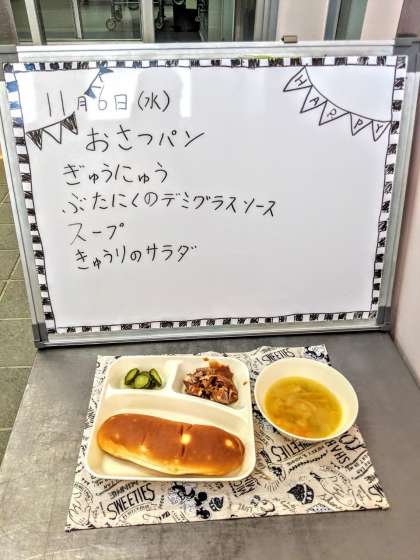 11月6日(水)
HAPPY
おさつパン
ぎゅうにゅう
ぶたにくのデミグラスソース
スープ
きゅうりのサラダ
SWEETIES
SWEETIES